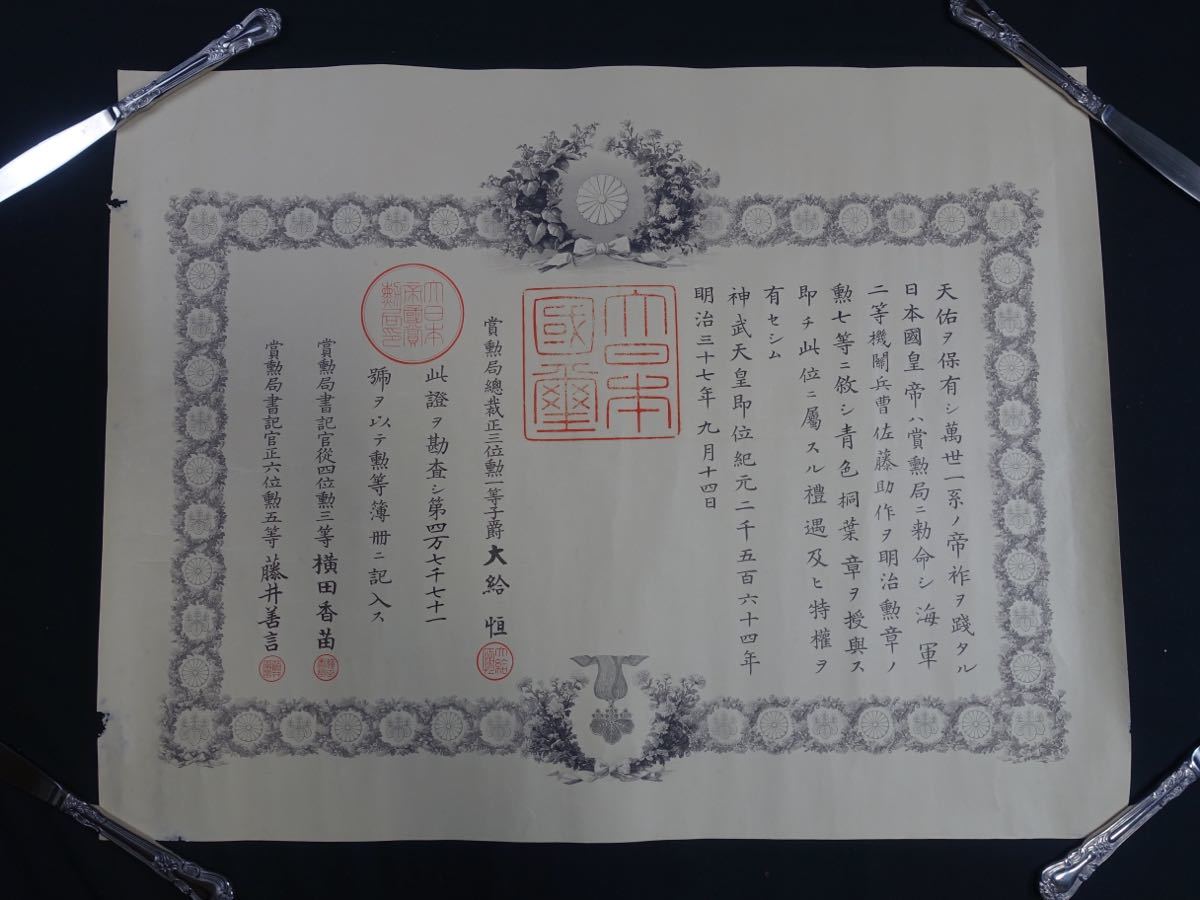 天佑ヲ保有シ萬世一系ノ帝祚ヲ踐タル
日本國皇帝ハ賞勲局ニ勅命シ海軍
二等機關兵曹佐藤助作ヲ明治勲章ノ
勲七等ニ敘シ青色桐葉章ヲ授與ス
即チ此位ニ屬スル禮遇及ヒ特權ヲ
有セシム
神武天皇即位紀元二千五百六十四年
明治三十七年九月十四日
大日本國璽
賞勲局總裁正三位勲一等子爵大給恒
大日本帝國賞勲局印
此證ヲ勘査シ第四万七千七十一
號ヲ以テ勲等簿冊ニ記入ス
賞勲局書記官從四位勲三等橫田香苗
賞勲局書記官正六位勲五等藤井善言